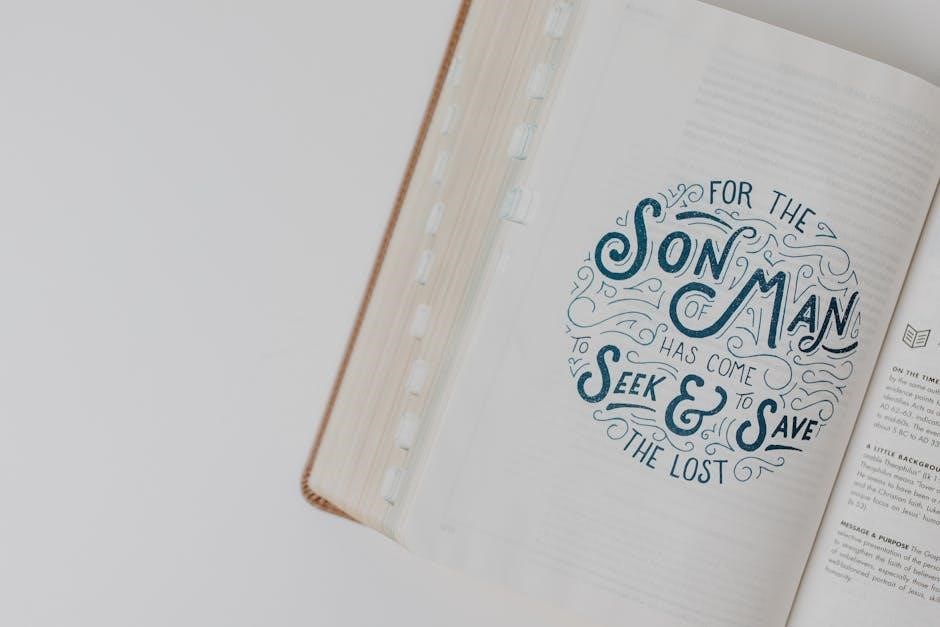 FOR THE
SON
OF MAN
HAS COME
TO SEEK & TO SAVE
THE LOST
ON THE TIME
by the same auth
evidence points t
identifies Acts as a
AD 62–63, indicat
to mid-60s. The eve
about 5 BC to AD 33
A LITTLE BACKGROU
orable Theophilus" (Lk 1
Theophilus means "lover
He seems to have been a
and the Christian faith. Luke
unique focus on Jesus' huma
(Is 53).
MESSAGE & PURPOSE The Gosp
selective presentation of the perso
to strengthen the faith of believers
of unbelievers, especially those fro
well-balanced portrait of Jesus, skil
humanity.